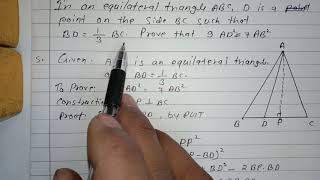 In an equilateral triangle ABC, D is a point
point on the side BC such that
BD = 1/3 BC. Prove that 9 AD² = 7 AB²
Given: A is an equilateral triangle
BD = 1/3 BC.
To Prove: AD² = 7 AB²
Construction P ⊥ BC
Proof: D, by PGT
DP²
P - BD)²
BD² - 2BP.BD
A
B D P C